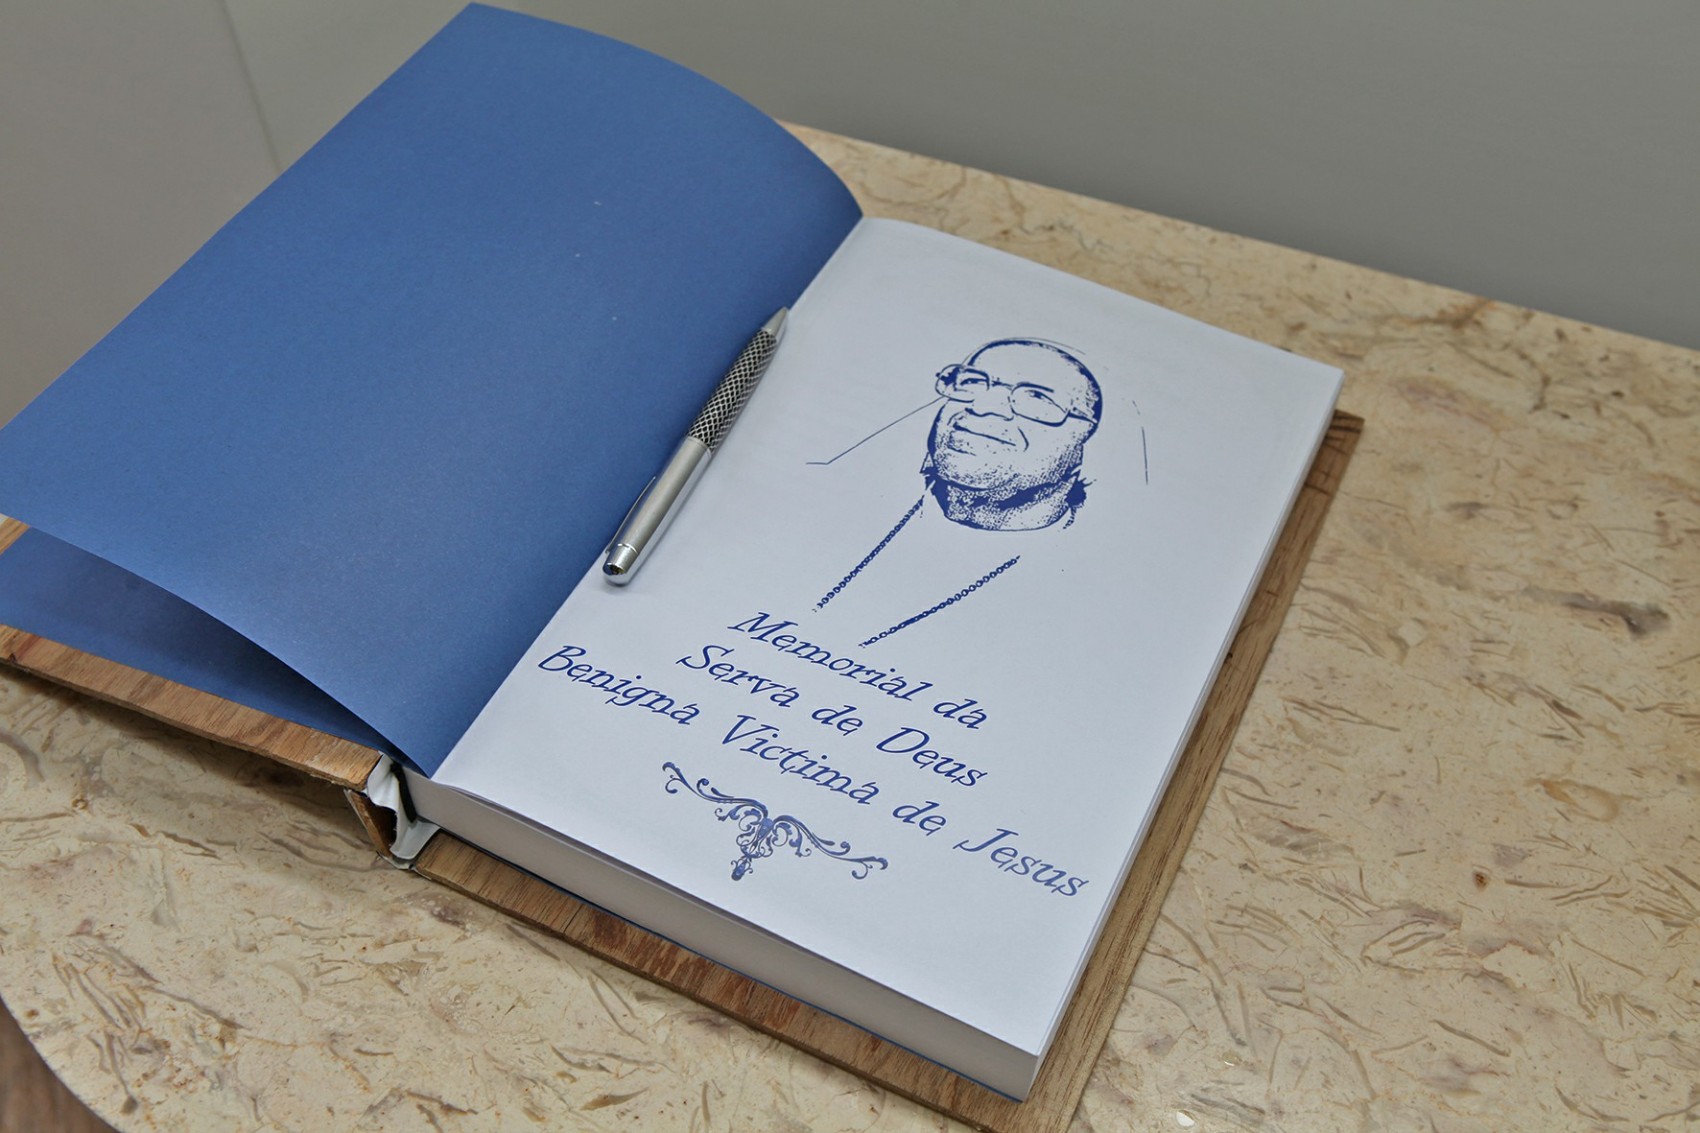 Memorial da
Serva de Deus
Benigna Victima de Jesus